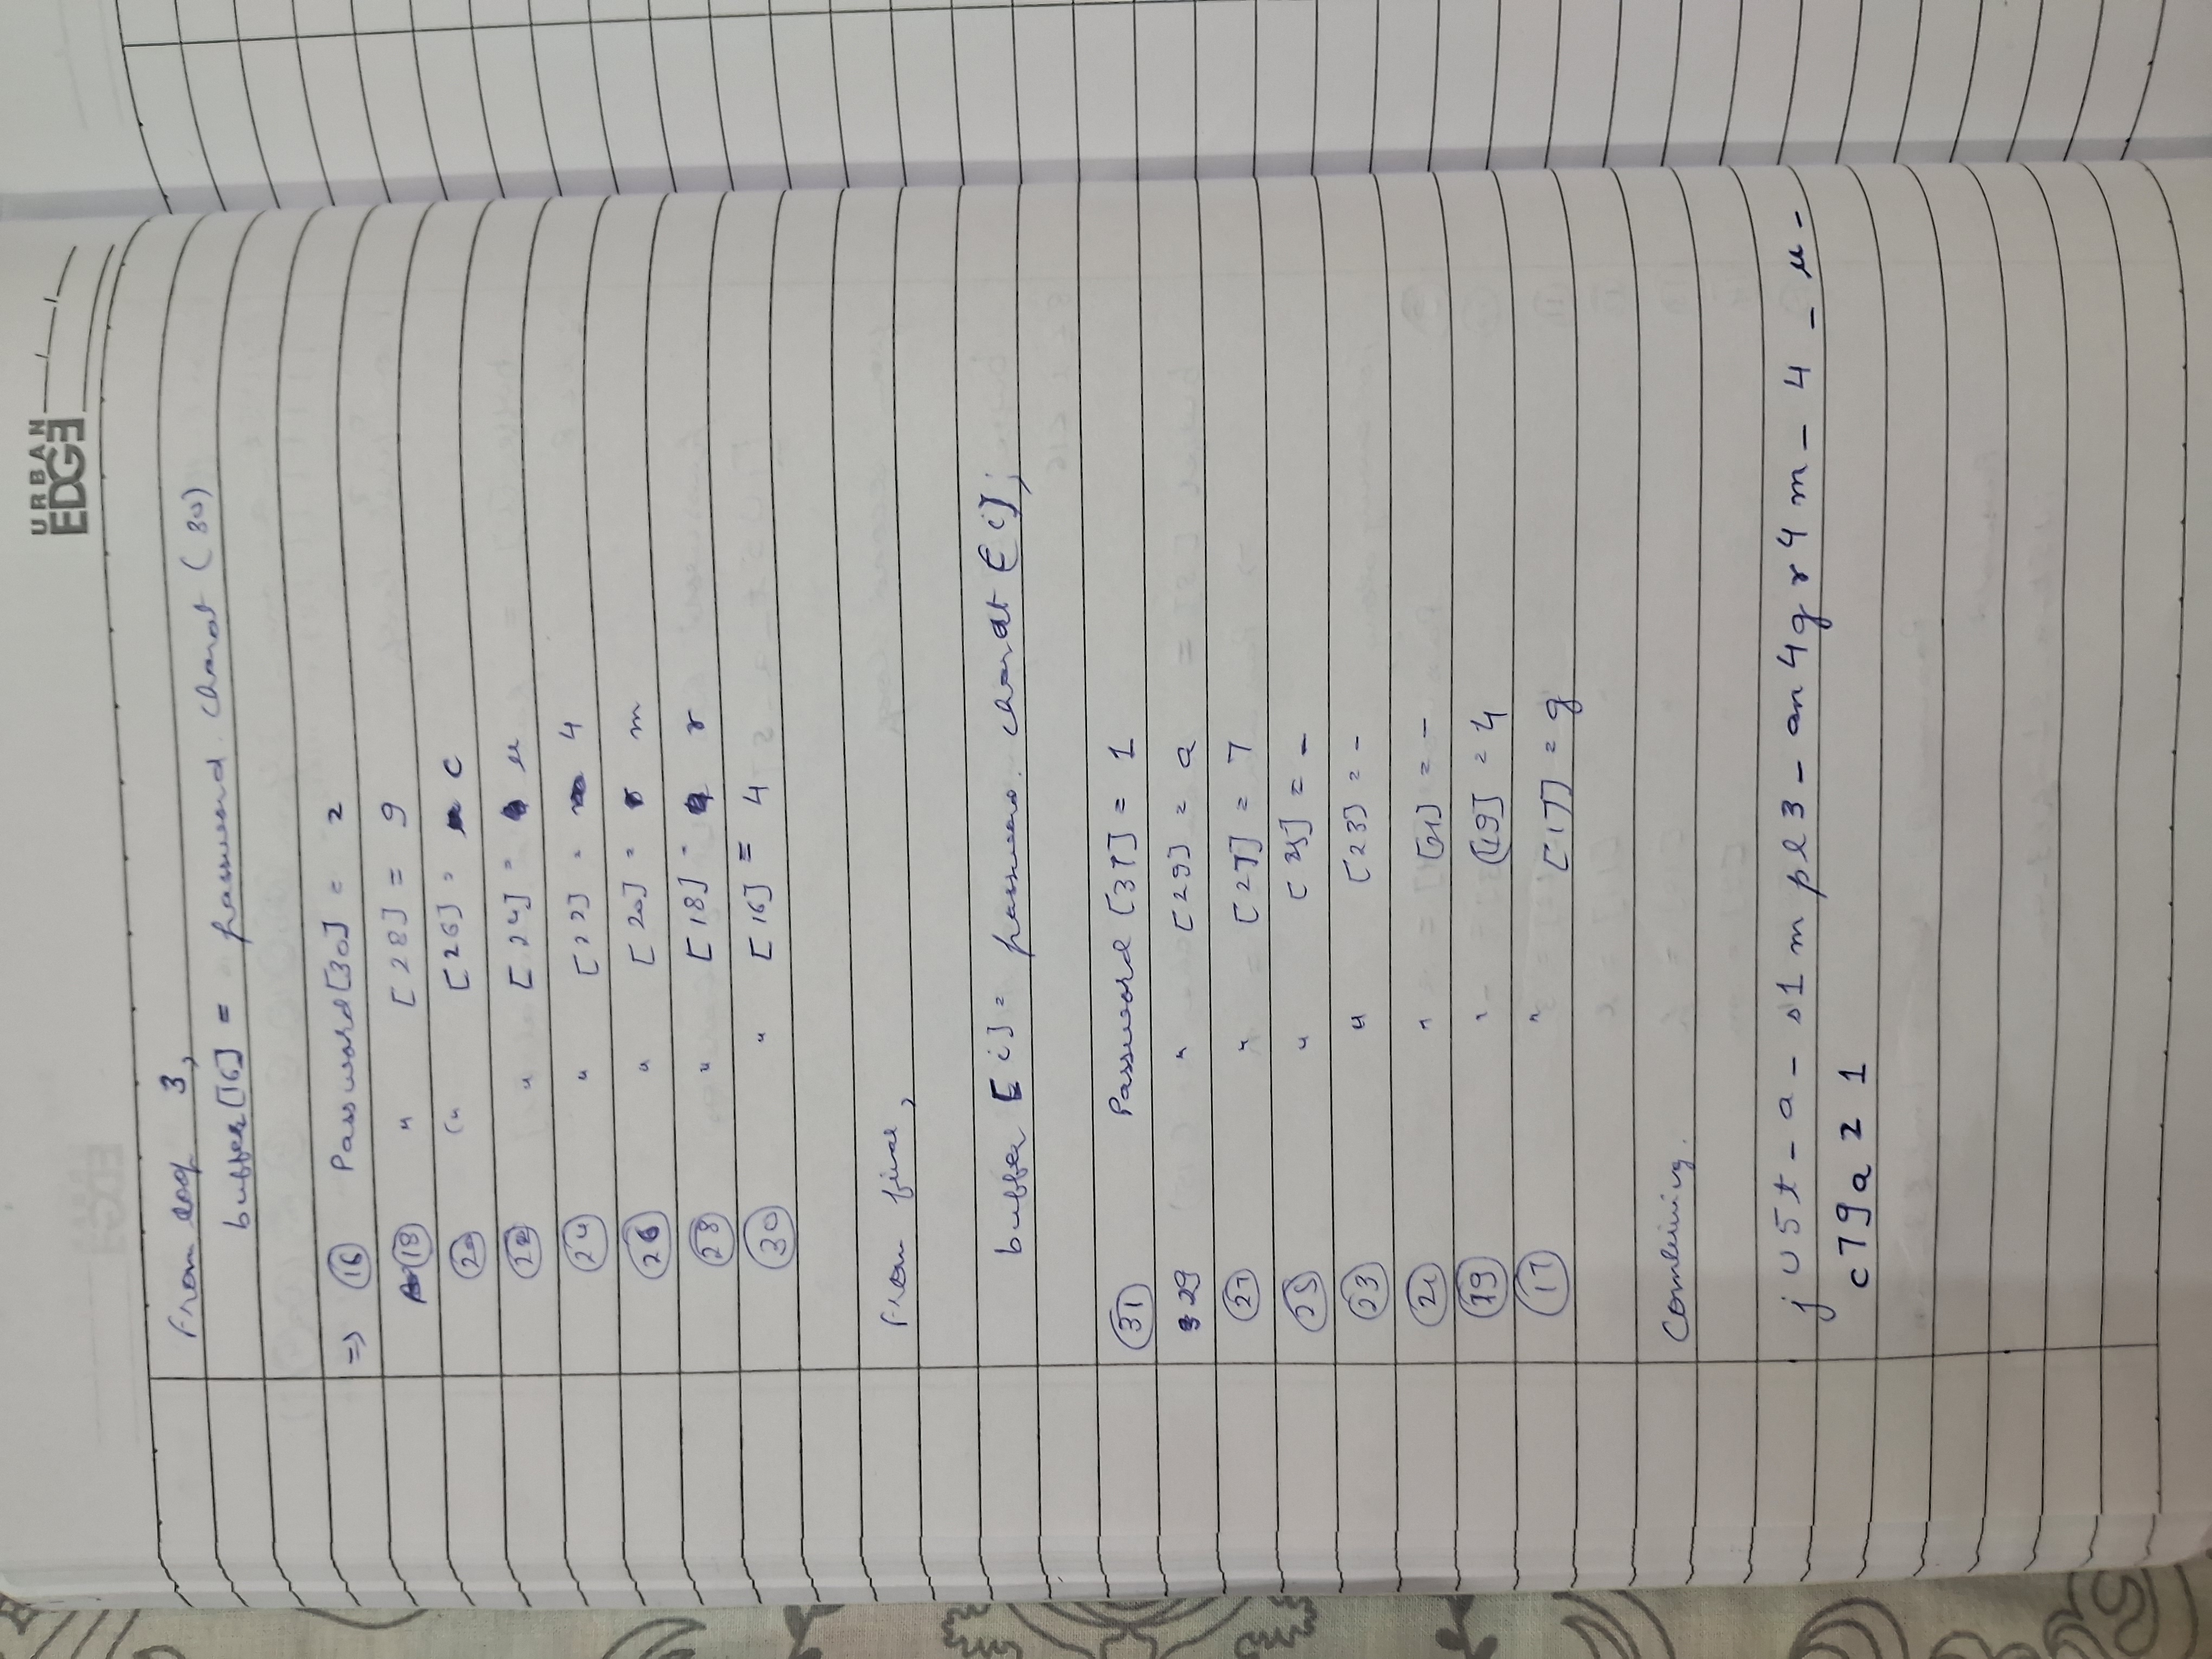 URBAN
EDGE
From loop 3,
buffer[16] = password.charat(30)
=> 16 Password[30] = 2
18 " [28] = 9
20 " [26] = c
22 " [24] = u
24 " [22] = 4
26 " [20] = m
28 " [18] = r
30 " [16] = 4
From final,
buffer [i] = passwo. charAt [i];
31 Password [31] = 1
29 " [29] = a
27 " [27] = 7
25 " [25] = -
23 " [23] = -
21 " [21] = -
19 " [19] = 4
17 " [17] = g
Combining.
jU5t_a_s1mpl3_an4gr4m_4_u_
c79a21